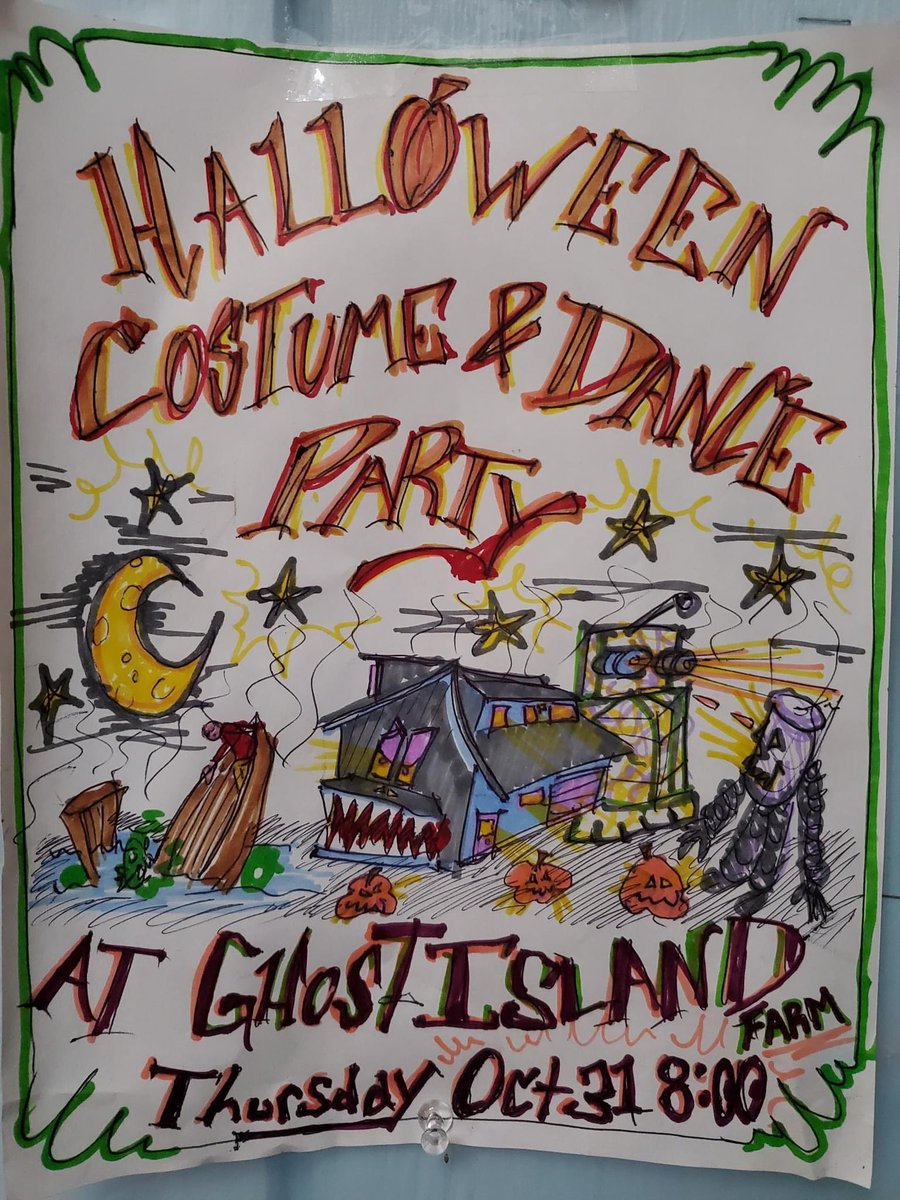 HALLOWEEN
COSTUME & DANCE
PARTY
AT GHOST ISLAND
FARM
Thursday Oct. 31 8:00